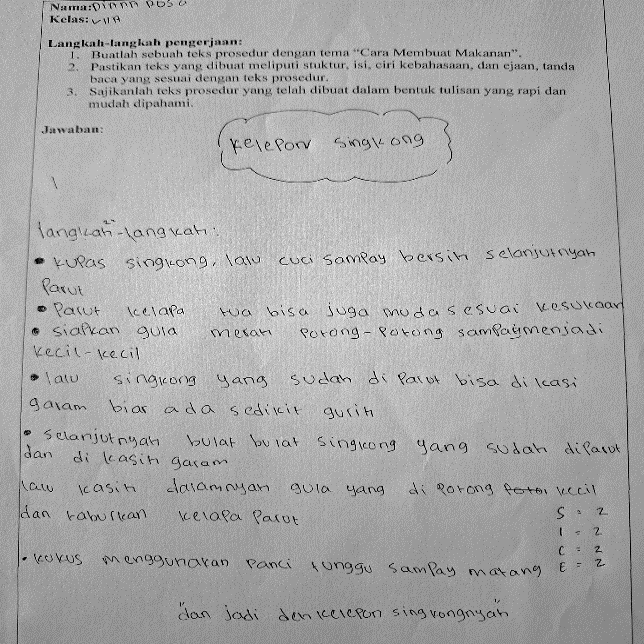 Nama: Dinnn Doso
Kelas: VIIA
Langkah-langkah pengerjaan:
1. Buatlah sebuah teks prosedur dengan tema "Cara Membuat Makanan".
2. Pastikan teks yang dibuat meliputi stuktur, isi, ciri kebahasaan, dan ejaan, tanda
baca yang sesuai dengan teks prosedur.
3. Sajikanlah teks prosedur yang telah dibuat dalam bentuk tulisan yang rapi dan
mudah dipahami.
Jawaban:
Kelepon singkong
langkah-langkah:
• kupas singkong, lalu cuci sampay bersih selanjutnyah
Parut
• Parut kelapa tua bisa juga muda sesuai kesukaan
• siapkan gula merah Potong-Potong sampay menjadi
kecil-kecil
• lalu singkong yang sudah di Parut bisa di kasi
garam biar ada sedikit gurih
• selanjutnyah bulat bulat singkong yang sudah diparut
dan di kasih garam
lalu kasih dalamnyah gula yang di potong kecil
dan taburkan kelapa Parut
S = 2
I = 2
C = 2
E = 2
• kukus menggunakan panci tunggu sampay matang
"dan jadi deh kelepon singkongnyah"